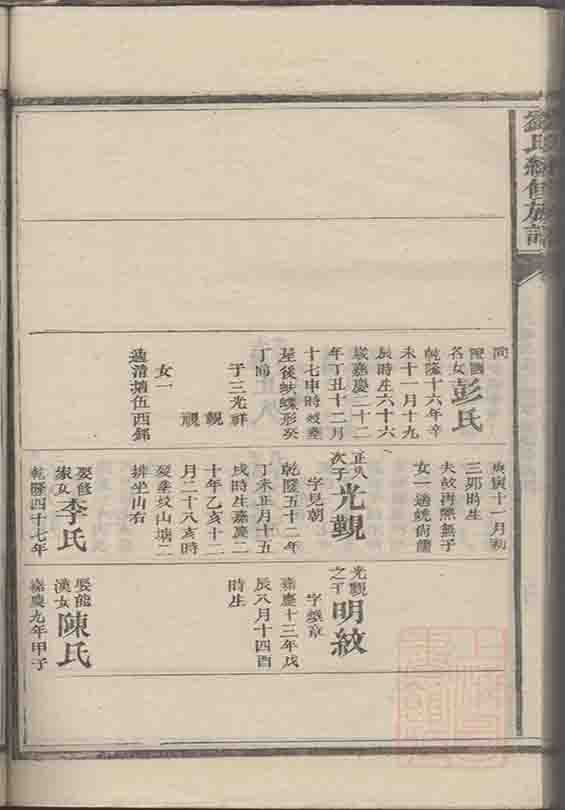 氏續修族譜
同
彭氏
名女
乾隆十六年辛
未十一月十九
辰時生六十六
歲嘉慶二十二
年丁丑十二月
十七申時歿葬
屋後蛱蝶形癸
丁向
子三光祥
觀
女一
適清塘伍西
庚寅十一月初
三卯時生
夫故再熊無子
女一適
正
次子
光觀
字見朝
乾隆五十二年
丁未正月十五
戌時生嘉慶二
十年乙亥十二
月二十八亥時
歿葬坟山塘二
排坐山右
娶修
家女
李氏
乾隆四十七年
光觀
之子
明紋
字
嘉慶十三年戊
辰八月十四酉
時生
娶龍
漢女
陳氏
嘉慶九年甲子